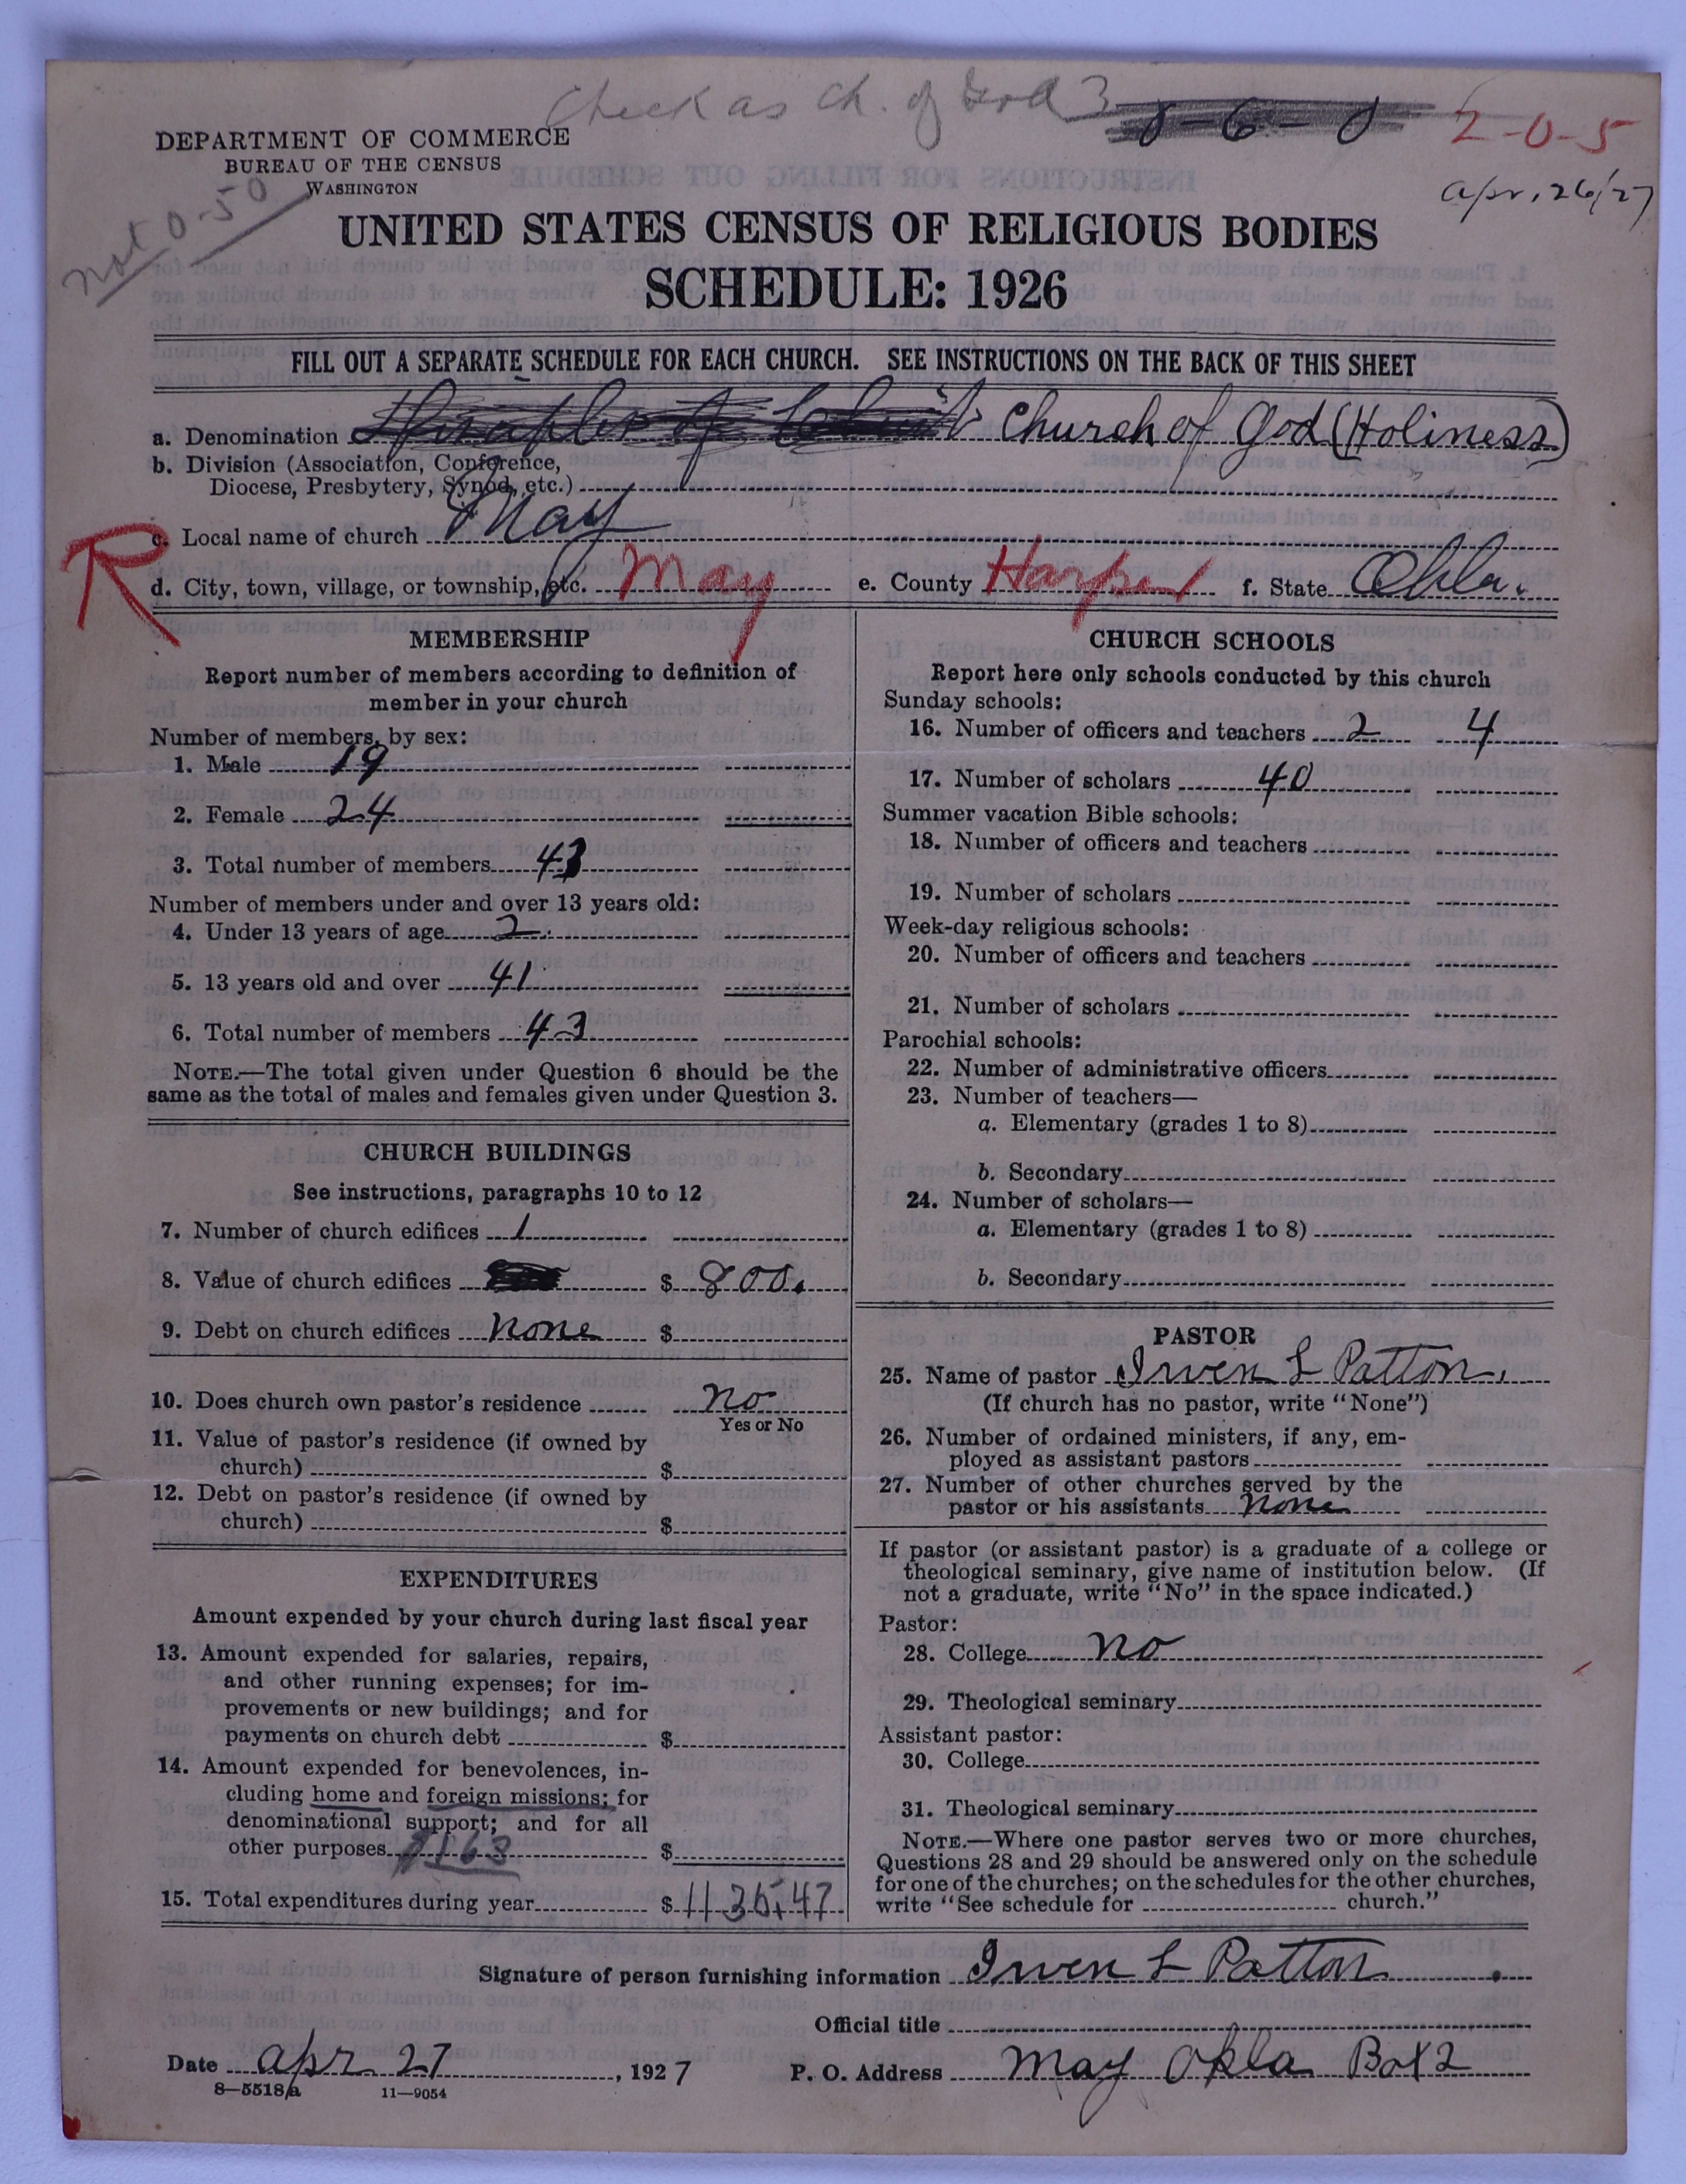 Check as Ch. of God 3
8-6-0
2-0-5
apr. 26/27
Not 0-50
DEPARTMENT OF COMMERCE
BUREAU OF THE CENSUS
WASHINGTON
UNITED STATES CENSUS OF RELIGIOUS BODIES
SCHEDULE: 1926
FILL OUT A SEPARATE SCHEDULE FOR EACH CHURCH. SEE INSTRUCTIONS ON THE BACK OF THIS SHEET
a. Denomination Church of God (Holiness)
b. Division (Association, Conference,
Diocese, Presbytery, Synod, etc.)
c. Local name of church May
R
d. City, town, village, or township, etc. May e. County Harper f. State Okla.
MEMBERSHIP
Report number of members according to definition of
member in your church
Number of members, by sex:
1. Male 19
2. Female 24
3. Total number of members 43
Number of members under and over 13 years old:
4. Under 13 years of age 2
5. 13 years old and over 41
6. Total number of members 43
NOTE.—The total given under Question 6 should be the
same as the total of males and females given under Question 3.
CHURCH BUILDINGS
See instructions, paragraphs 10 to 12
7. Number of church edifices 1
8. Value of church edifices $ 800.
9. Debt on church edifices none $
10. Does church own pastor's residence no
Yes or No
11. Value of pastor's residence (if owned by
church) $
12. Debt on pastor's residence (if owned by
church) $
EXPENDITURES
Amount expended by your church during last fiscal year
13. Amount expended for salaries, repairs,
and other running expenses; for im-
provements or new buildings; and for
payments on church debt $
14. Amount expended for benevolences, in-
cluding home and foreign missions; for
denominational support; and for all
other purposes $
15. Total expenditures during year $ 1135.47
CHURCH SCHOOLS
Report here only schools conducted by this church
Sunday schools:
16. Number of officers and teachers 2 4
17. Number of scholars 40
Summer vacation Bible schools:
18. Number of officers and teachers
19. Number of scholars
Week-day religious schools:
20. Number of officers and teachers
21. Number of scholars
Parochial schools:
22. Number of administrative officers
23. Number of teachers—
a. Elementary (grades 1 to 8)
b. Secondary
24. Number of scholars—
a. Elementary (grades 1 to 8)
b. Secondary
PASTOR
25. Name of pastor Irven L Patton.
(If church has no pastor, write "None")
26. Number of ordained ministers, if any, em-
ployed as assistant pastors
27. Number of other churches served by the
pastor or his assistants none
If pastor (or assistant pastor) is a graduate of a college or
theological seminary, give name of institution below. (If
not a graduate, write "No" in the space indicated.)
Pastor:
28. College no
29. Theological seminary
Assistant pastor:
30. College
31. Theological seminary
NOTE.—Where one pastor serves two or more churches,
Questions 28 and 29 should be answered only on the schedule
for one of the churches; on the schedules for the other churches,
write "See schedule for church."
Signature of person furnishing information Irven L Patton
Official title
Date apr 27, 1927 P. O. Address May Okla Box 2
8—5518a 11—9054